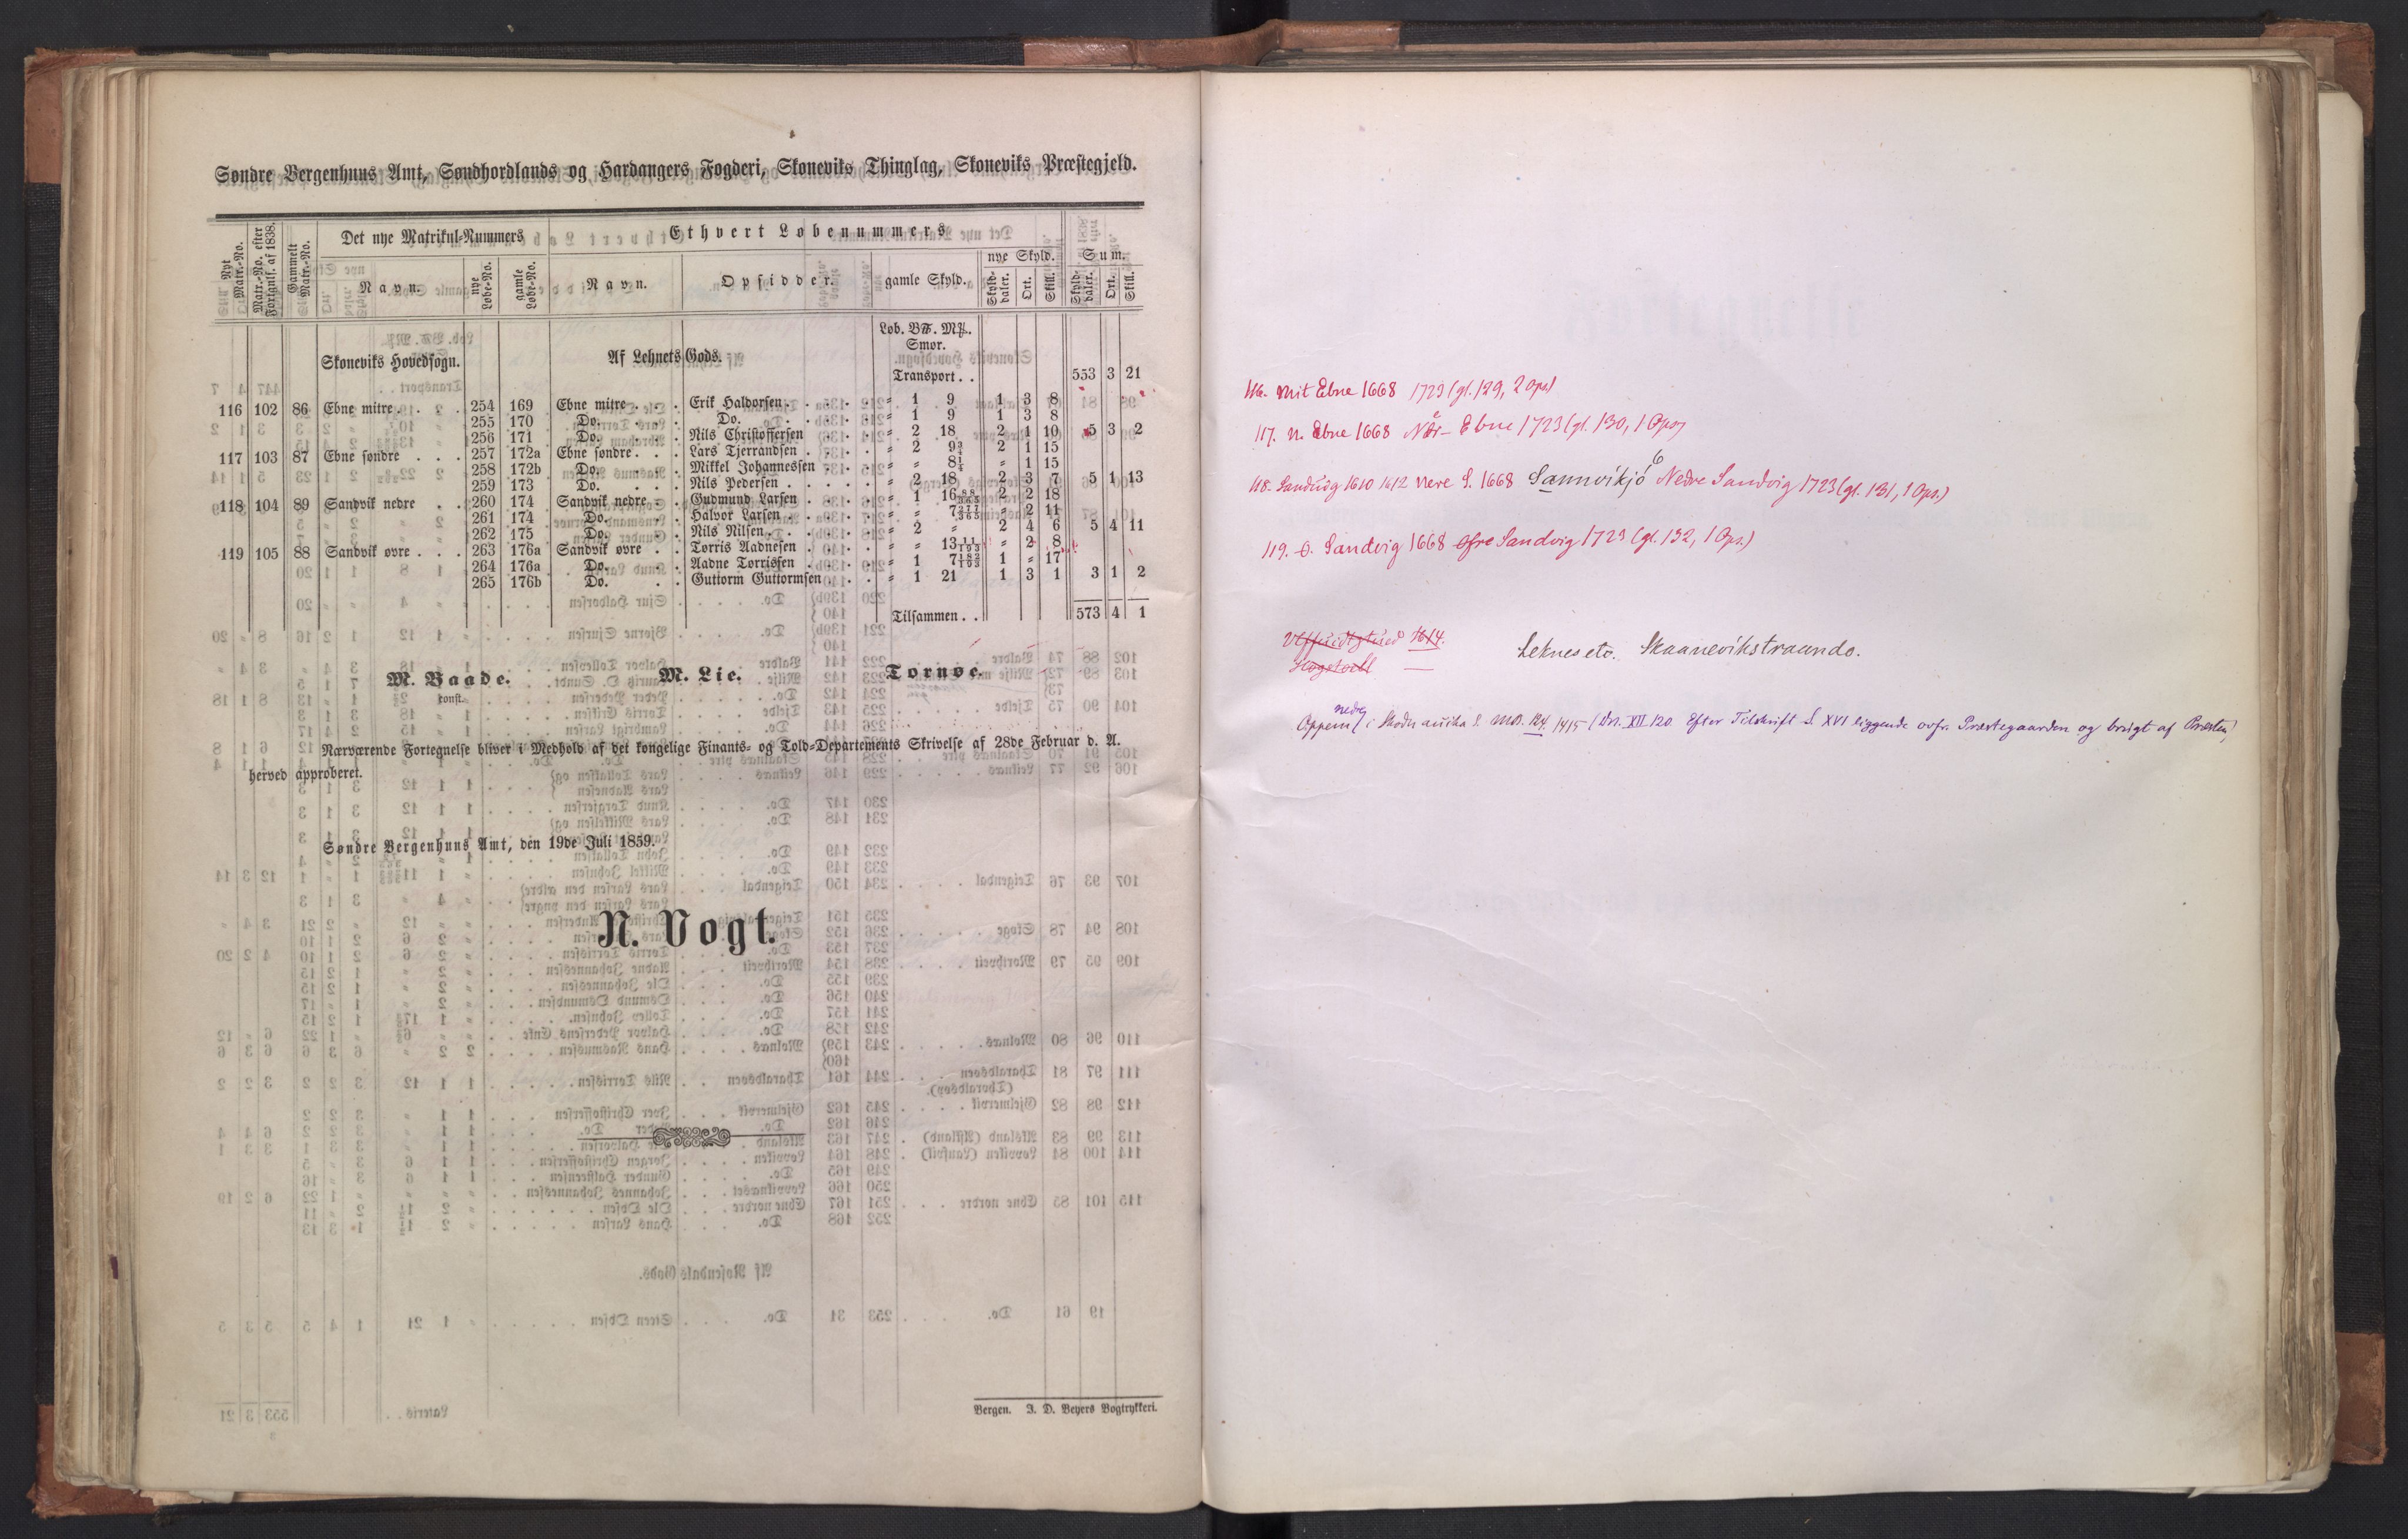 Søndre Bergenhuus Amt, Søndhordlands og Hardangers Fogderi, Skoneviks Thinglag, Skoneviks Præstegjeld.
Nyt Matr.-No. Matr.-No. efter Forignlf. af 1838. Gammelt Matr.-No. Det nye Matrikul-Nummers Ethvert Løbenummers
Navn. nye Løbe-No. gamle Løbe-No. Navn. Opsidder. gamle Skyld. nye Skyld. Sum.
Skylddaler. Ort. Skill. Skylddaler. Ort. Skill.
Løb. B℔. M℔.
Smør.
Skoneviks Hovedsogn. Af Lehnets Gods.
Transport . . 553 3 21
116 102 86 Ebne mitre . . . 254 169 Ebne mitre . . . Erik Haldorsen . . . . " 1 9 1 3 8
255 170 Do. . . Do. . . . . " 1 9 1 3 8
256 171 Do. . . Nils Christoffersen . . . " 2 18 2 1 10 5 3 2
117 103 87 Ebne søndre . . . 257 172a Ebne søndre . . . Lars Tjerrandsen . . . . " 2 9¾ 2 1 15
258 172b Do. . . Mikkel Johannessen . . . " " 8¼ " 1 15
259 173 Do. . . Nils Pedersen . . . . . " 2 18 2 3 7 5 1 13
118 104 89 Sandvik nedre . . 260 174 Sandvik nedre . . Gudmund Larsen . . . . " 1 16 88/365 2 2 18
261 174 Do. . . Halvor Larsen . . . . . " " 7 277/365 " 2 11
262 175 Do. . . Nils Nilsen . . . . . " 2 " 2 4 6 5 4 11
119 105 88 Sandvik øvre . . . 263 176a Sandvik øvre . . Torris Aadnesen . . . . " " 13 11/193 " 2 8
264 176a Do. . . Aadne Torrissen . . . . " 1 7 182/193 1 " 17
265 176b Do. . . Guttorm Guttormsen . . . " 1 21 1 3 1 3 1 2
Tilsammen . . 573 4 1
M. Baade. M. Lie. Tornøe.
const.
Nærværende Fortegnelse bliver i Medhold af det kongelige Finants- og Told-Departements Skrivelse af 28de Februar d. A.
herved approberet.
Søndre Bergenhuus Amt, den 19de Juli 1859.
N. Vogt.
Bergen. J. D. Beyers Bogtrykkeri.
116. Mit Ebne 1668 1723 (gl. 129, 2 Ops.)
117. N. Ebne 1668 Nör-Ebne 1723 (gl. 130, 1 Ops.)
118. Sandvig 1610 1612 Nere S. 1668 Sannvíkjó Nedre Sandvig 1723 (gl. 131, 1 Ops.)
119. Ö. Sandvig 1668 Øfre Sandvig 1723 (gl. 132, 1 Ops.)
1614.
Lekneseto. Skaanevíkstraando.
nedg
Oppem i Skodnauika S. MB. 124. 1415 (Dn. XII 120 Efter Tilskrift S. XVI liggende ovfr. Præstegaarden og brugt af Præsten)